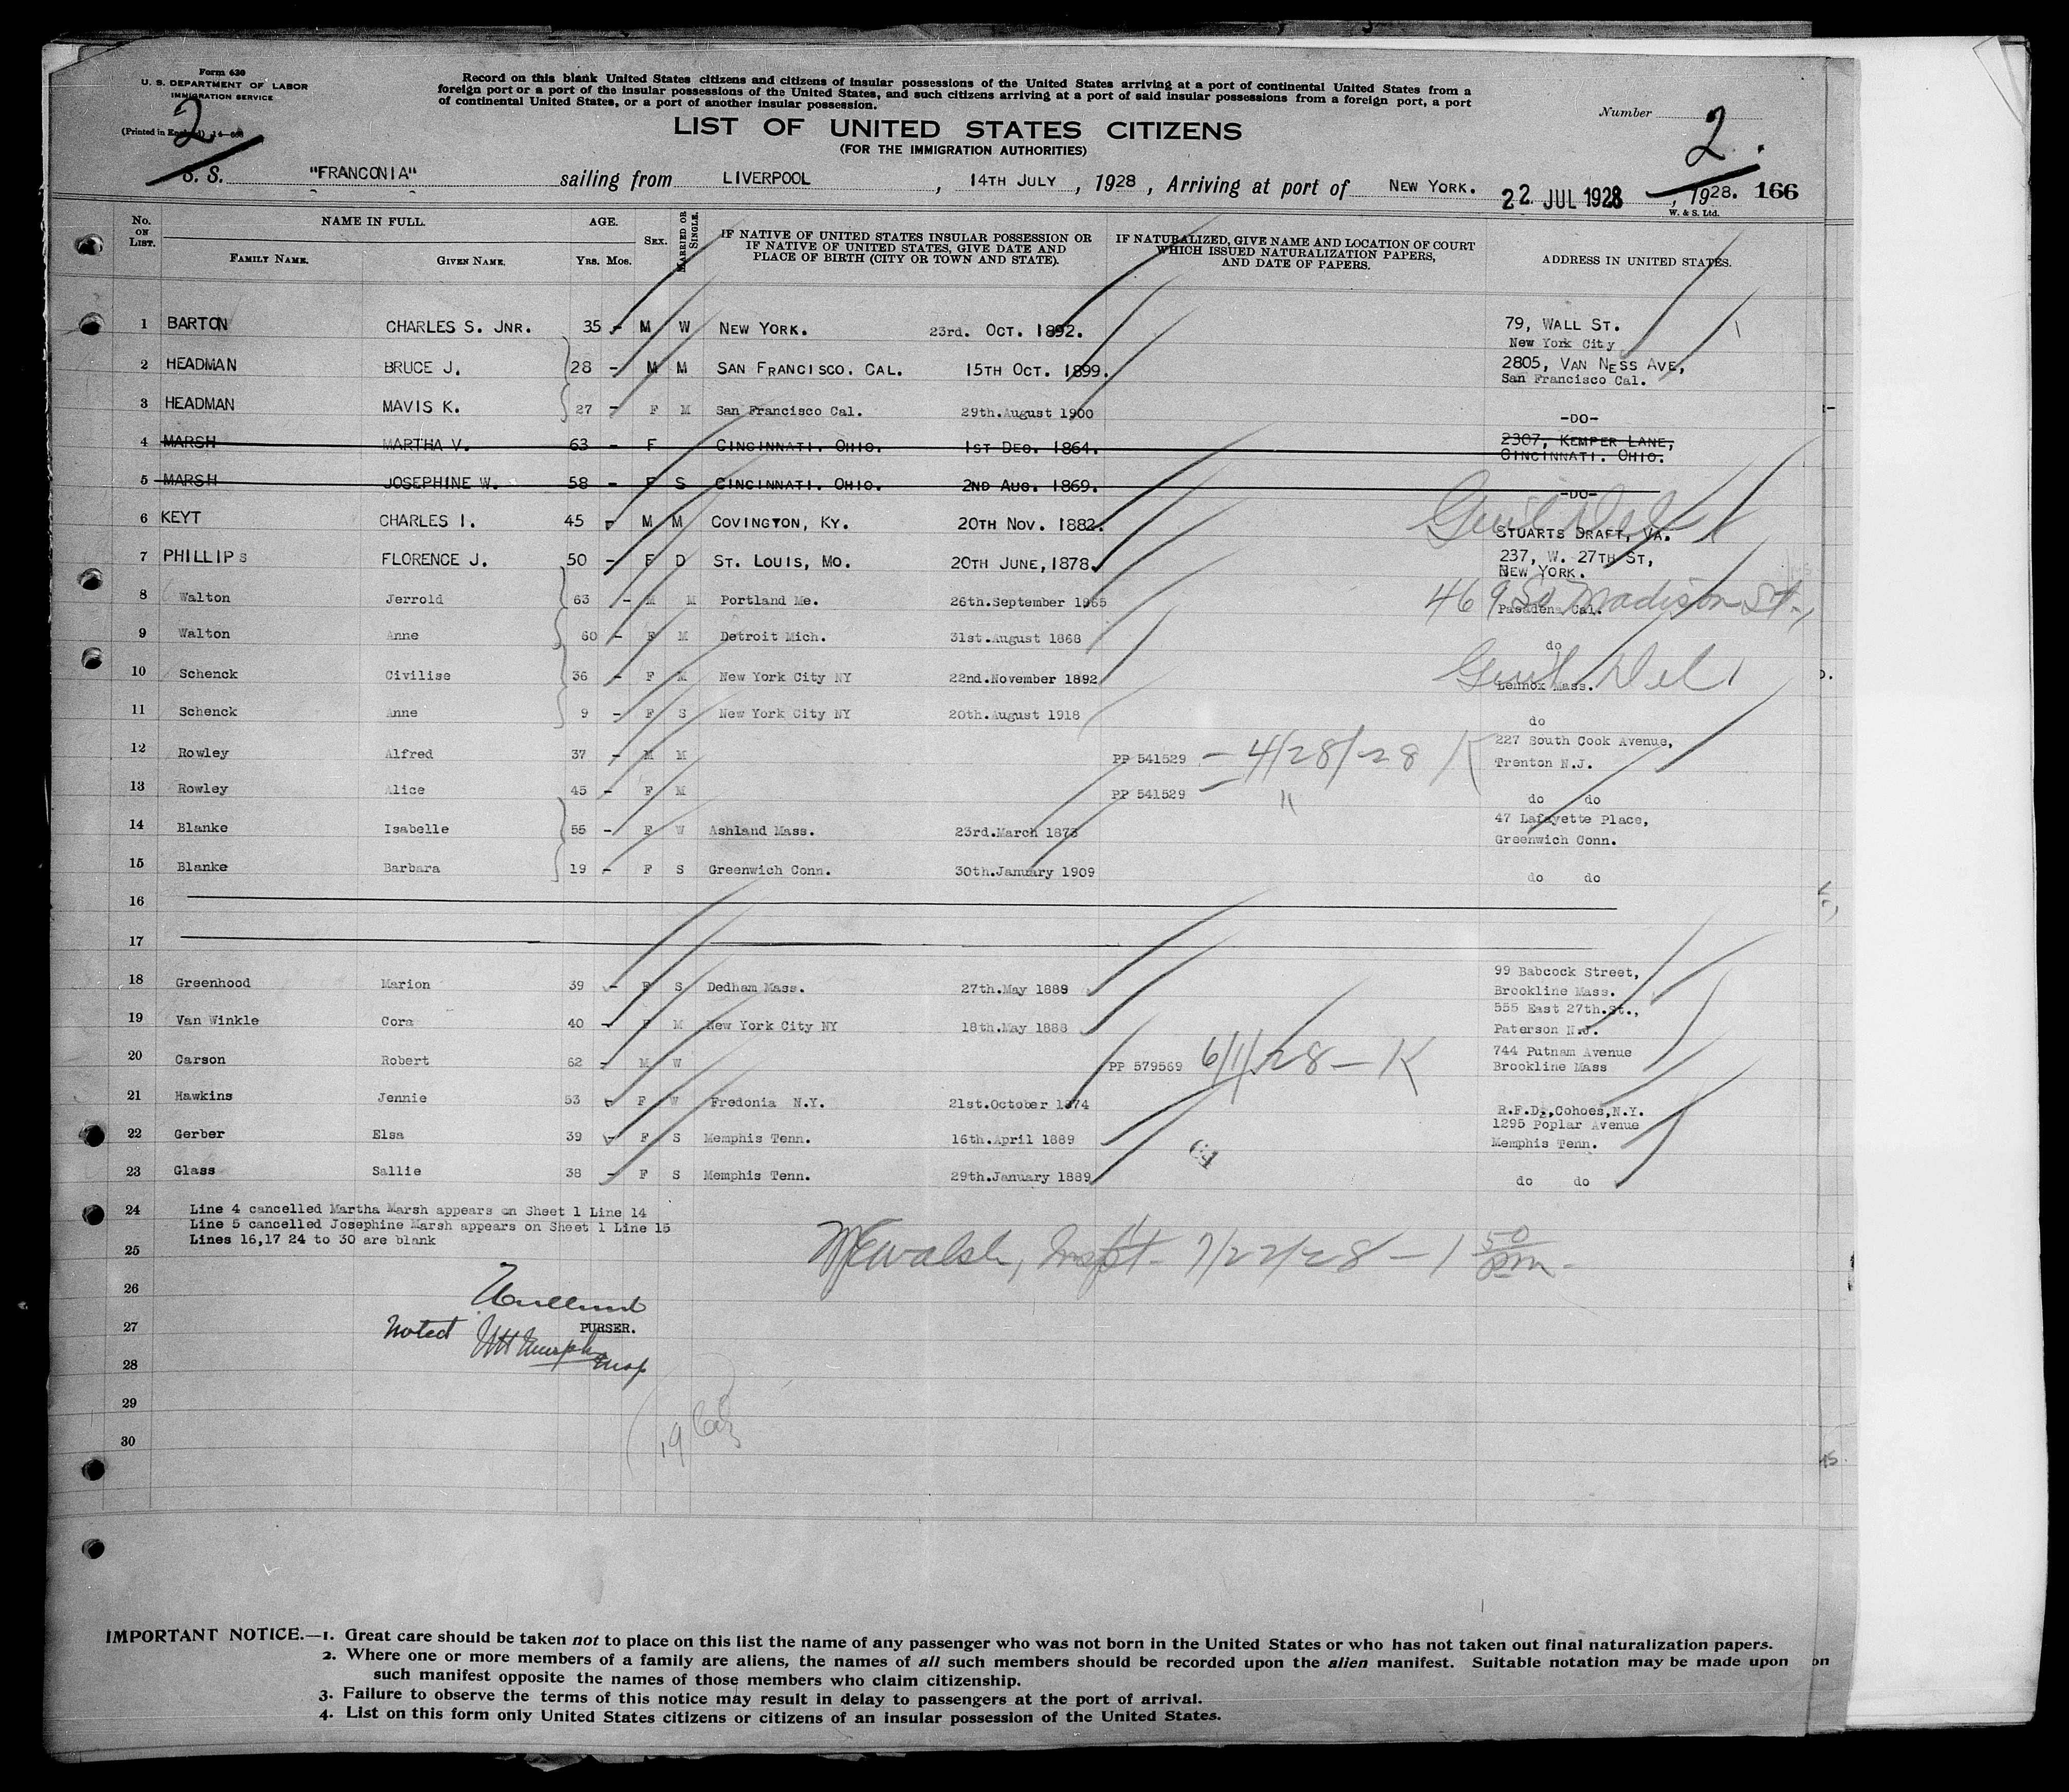 Form 630
U. S. DEPARTMENT OF LABOR
IMMIGRATION SERVICE
(Printed in England)
2
Record on this blank United States citizens and citizens of insular possessions of the United States arriving at a port of continental United States from a
foreign port or a port of the insular possessions of the United States, and such citizens arriving at a port of said insular possessions from a foreign port, a port
of continental United States, or a port of another insular possession.
Number 2.
LIST OF UNITED STATES CITIZENS
(FOR THE IMMIGRATION AUTHORITIES)
S. S. "FRANCONIA" sailing from LIVERPOOL, 14TH JULY, 1928, Arriving at port of NEW YORK. 22 JUL 1928, 1928. 166
W. & S. Ltd.
No. ON LIST. NAME IN FULL. AGE. SEX. MARRIED OR SINGLE. IF NATIVE OF UNITED STATES INSULAR POSSESSION OR IF NATIVE OF UNITED STATES, GIVE DATE AND PLACE OF BIRTH (CITY OR TOWN AND STATE). IF NATURALIZED, GIVE NAME AND LOCATION OF COURT WHICH ISSUED NATURALIZATION PAPERS, AND DATE OF PAPERS. ADDRESS IN UNITED STATES.
FAMILY NAME. GIVEN NAME. Yrs. Mos.
1 BARTON CHARLES S. JNR. 35 - M W NEW YORK. 23rd. OCT. 1892. 79, WALL ST.
New York City
2 HEADMAN BRUCE J. 28 - M M SAN FRANCISCO. CAL. 15TH OCT. 1899. 2805, VAN NESS AVE,
San Francisco Cal.
3 HEADMAN MAVIS K. 27 - F M San Francisco Cal. 29th.August 1900 -DO-
4 MARSH MARTHA V. 63 - F CINCINNATI. OHIO. 1ST DEC. 1864. 2307, KEMPER LANE,
CINCINNATI. OHIO.
5 MARSH JOSEPHINE W. 58 - F S CINCINNATI. OHIO. 2ND AUG. 1869. -DO-
6 KEYT CHARLES I. 45 - M M COVINGTON, KY. 20TH NOV. 1882. STUARTS DRAFT, VA.
7 PHILLIPS FLORENCE J. 50 - F D ST. LOUIS, MO. 20TH JUNE, 1878. 237, W. 27TH ST,
NEW YORK.
8 Walton Jerrold 63 - M M Portland Me. 26th.September 1965 469 So Madison St.,
Pasadena Cal.
9 Walton Anne 60 - F M Detroit Mich. 31st.August 1868 do
10 Schenck Civilise 36 - F M New York City NY 22nd.November 1892 Lennox Mass.
11 Schenck Anne 9 - F S New York City NY 20th.August 1918 do
12 Rowley Alfred 37 - M M PP 541529 - 4/28/-28 K 227 South Cook Avenue,
Trenton N.J.
13 Rowley Alice 45 - F M PP 541529 - " do do
14 Blanke Isabelle 55 - F W Ashland Mass. 23rd.March 1873 47 Lafayette Place,
Greenwich Conn.
15 Blanke Barbara 19 - F S Greenwich Conn. 30th.January 1909 do do
16
17
18 Greenhood Marion 39 - F S Dedham Mass. 27th.May 1889 99 Babcock Street,
Brookline Mass.
19 Van Winkle Cora 40 - F M New York City NY 18th.May 1888 555 East 27th.St.,
Paterson N.J.
20 Carson Robert 62 - M W PP 579569 6/1/28 - K 744 Putnam Avenue
Brookline Mass
21 Hawkins Jennie 53 - F W Fredonia N.Y. 21st.October 1874 R.F.D.,Cohoes,N.Y.
22 Gerber Elsa 39 - F S Memphis Tenn. 16th.April 1889 1295 Poplar Avenue
Memphis Tenn.
23 Glass Sallie 38 - F S Memphis Tenn. 29th.January 1889 do do
24 Line 4 cancelled Martha Marsh appears on Sheet 1 Line 14
Line 5 cancelled Josephine Marsh appears on Sheet 1 Line 15
Lines 16,17 24 to 30 are blank
25 Walsh, Inspt. 7/22/28 - 1 50 pm.
26
27 PURSER.
Noted
28
29
30
IMPORTANT NOTICE.—1. Great care should be taken not to place on this list the name of any passenger who was not born in the United States or who has not taken out final naturalization papers.
2. Where one or more members of a family are aliens, the names of all such members should be recorded upon the alien manifest. Suitable notation may be made upon
such manifest opposite the names of those members who claim citizenship.
3. Failure to observe the terms of this notice may result in delay to passengers at the port of arrival.
4. List on this form only United States citizens or citizens of an insular possession of the United States.